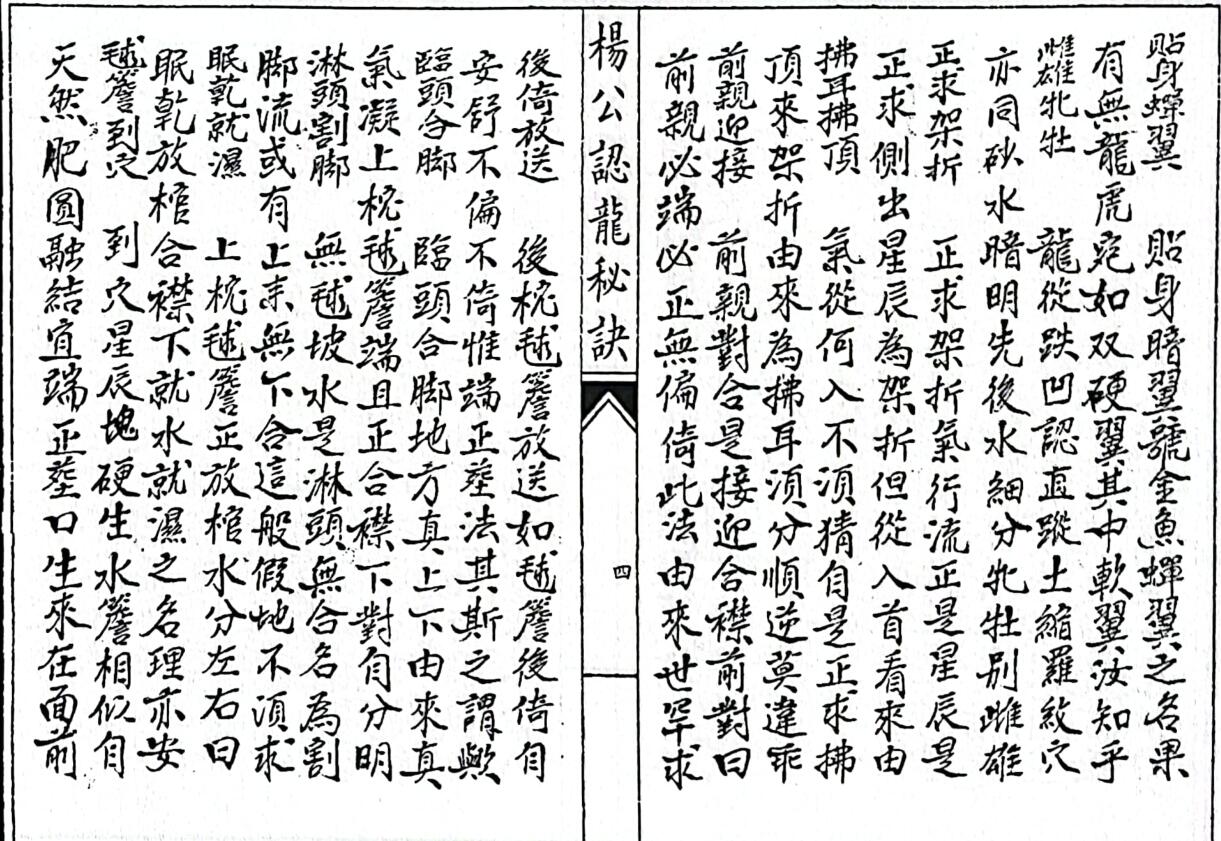 貼身蟬翼　貼身暗翼號金魚蟬翼之名果
有無龍虎宛如双硬翼其中軟翼汝知乎
雌雄牝牡　龍從跌凹認直蹤土縮羅紋穴
亦同砂水暗明先後水細分牝牡别雌雄
正求架折　正求架折氣行流正是星辰是
正求側出星辰為架折但從入首看來由
拂耳拂頂　氣從何入不須猜自是正求拂
頂來架折由來為拂耳須分順逆莫違乖
前親迎接　前親對合是接迎合襟前對曰
前親必端必正無偏倚此法由來世罕求
楊公認龍秘訣
四
後倚放送　後枕毬簷放送如毬簷後倚自
安舒不偏不倚惟端正塟法其斯之謂歟
臨頭合脚　臨頭合脚地方真上下由來真
氣凝上枕毬簷端且正合襟下對自分明
淋頭割脚　無毬坡水是淋頭無合名為割
脚流或有上來無下合這般假地不須求
眠乾就濕　上枕毬簷正放棺水分左右曰
眠乾放棺合襟下就水就濕之名理亦安
毬簷到穴　到穴星辰塊硬生水簷相似自
天然肥圓融結宜端正塟口生來在面前